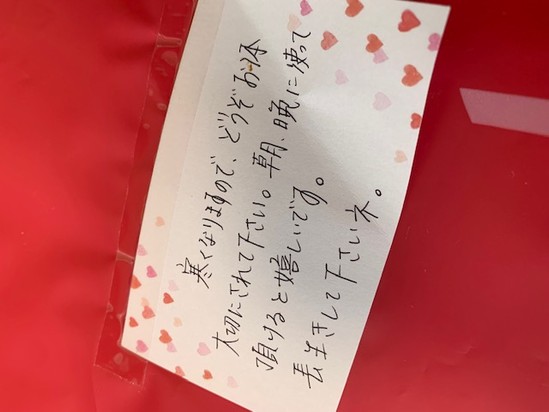 寒くなりますので、どうぞお体
大切にされて下さい。朝、晩に使って
頂けると嬉しいです。
長生きして下さいネ。